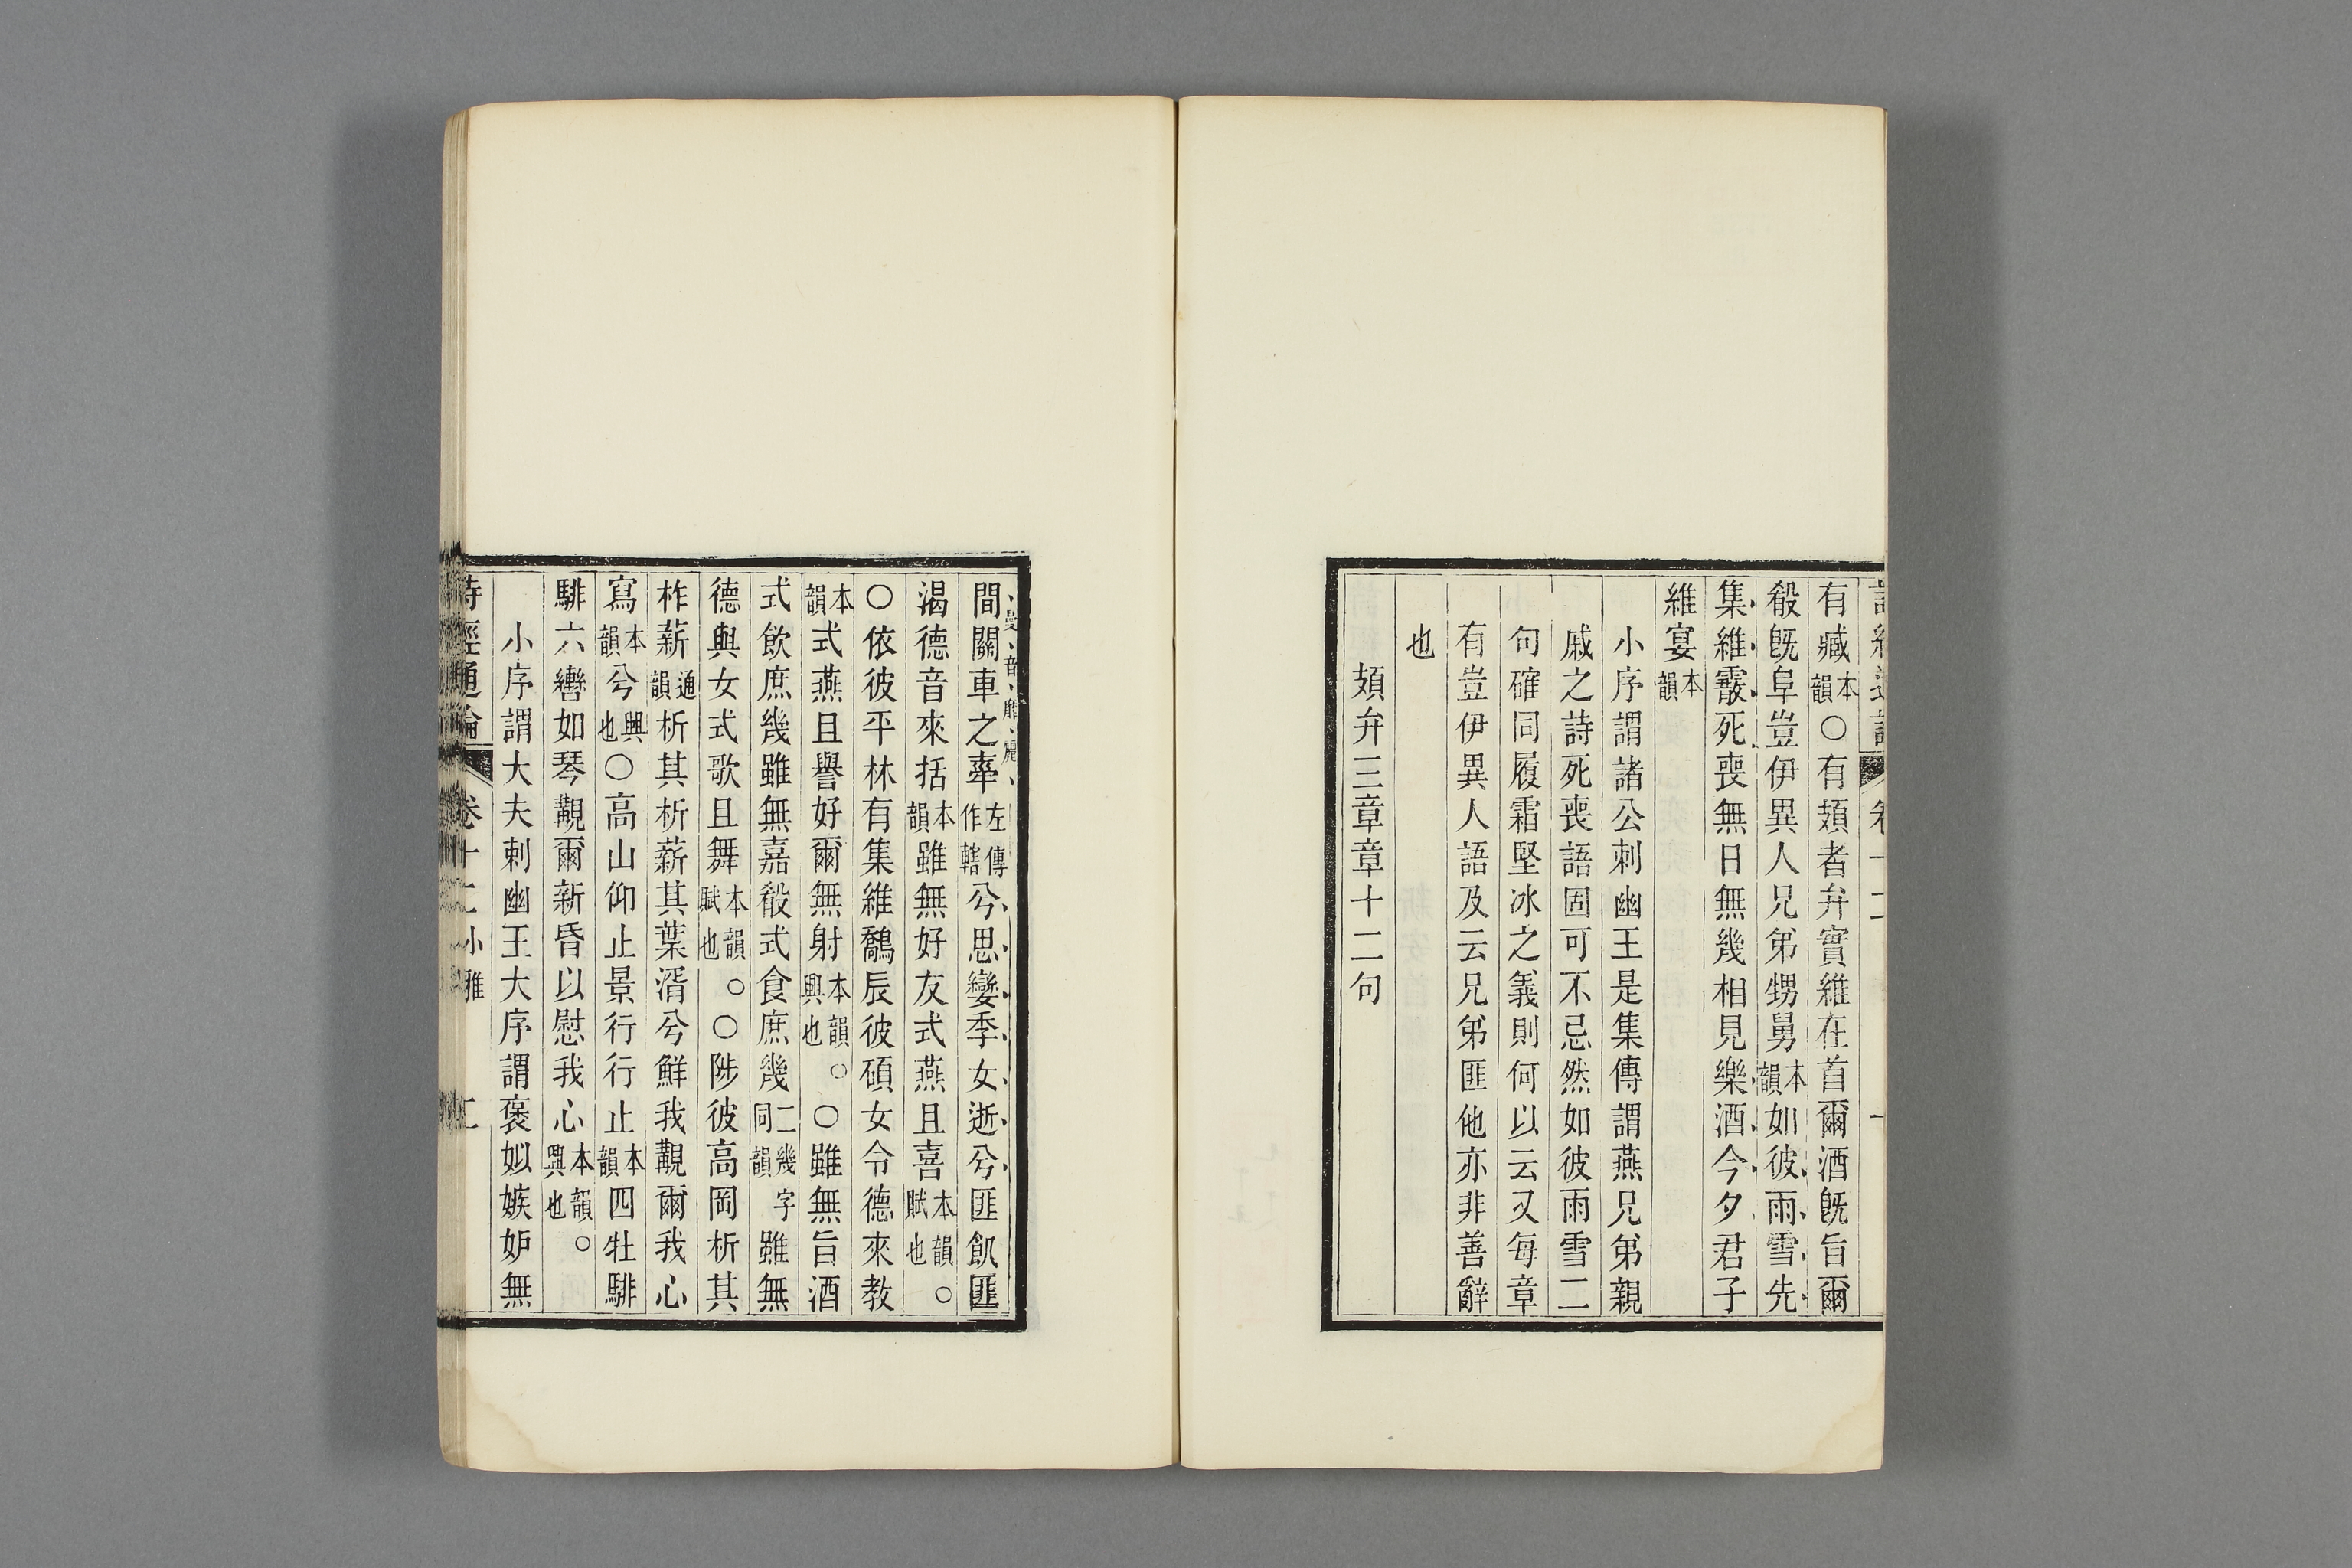 詩經通論 卷十二 一
有臧本韻○有頍者弁實維在首爾酒旣旨爾
殽旣阜豈伊異人兄弟甥舅本韻如彼雨雪先
集維霰死喪無日無幾相見樂酒今夕君子
維宴本韻
小序謂諸公刺幽王是集傳謂燕兄弟親
戚之詩死喪語固可不忌然如彼雨雪二
句確同履霜堅冰之義則何以云又每章
有豈伊異人語及云兄弟匪他亦非善辭
也
頍弁三章章十二句
間關車之舝左傳作轄兮思孌季女逝兮匪飢匪
渴德音來括本韻雖無好友式燕且喜本韻賦也○
○依彼平林有集維鷮辰彼碩女令德來教
本韻式燕且譽好爾無射本韻興也○○雖無旨酒
式飲庶幾雖無嘉殽式食庶幾二幾字同韻雖無
德與女式歌且舞本韻賦也○○陟彼高岡析其
柞薪通韻析其柞薪其葉湑兮鮮我覯爾我心
寫本韻兮興也○高山仰止景行行止本韻四牡騑
騑六轡如琴覯爾新昏以慰我心本韻興也○
小序謂大夫刺幽王大序謂褒姒嫉妒無
詩經通論 卷十二小雅